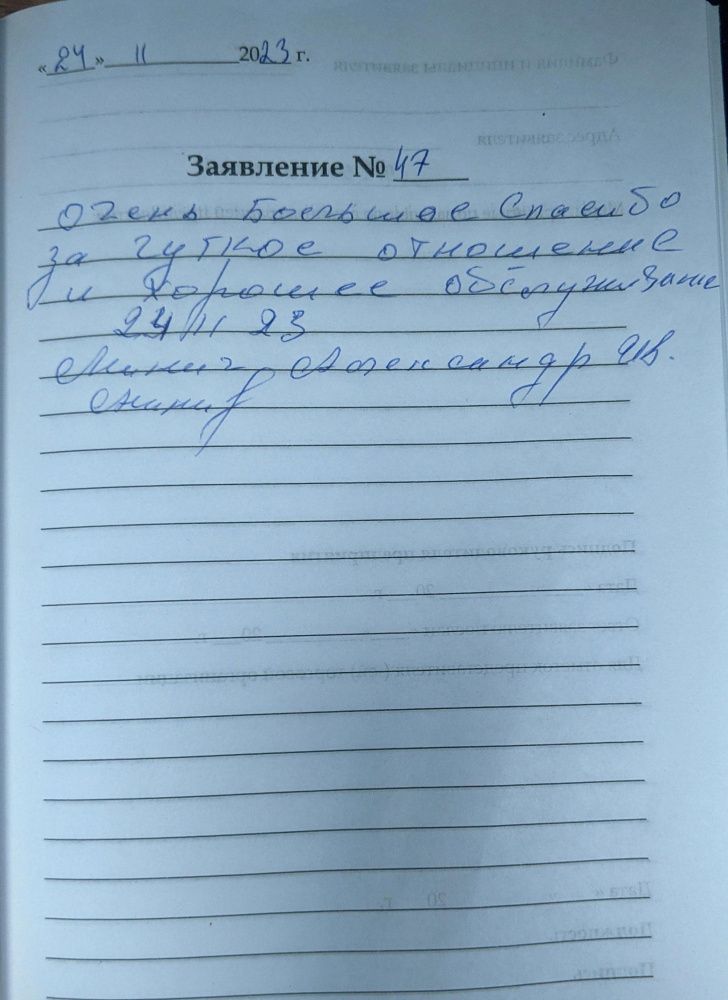 «24» 11 2023 г.
Заявление № 47
Очень Большое Спасибо
за чуткое отношение
и хорошее обслуживание
24 11 23
Александр Ив.